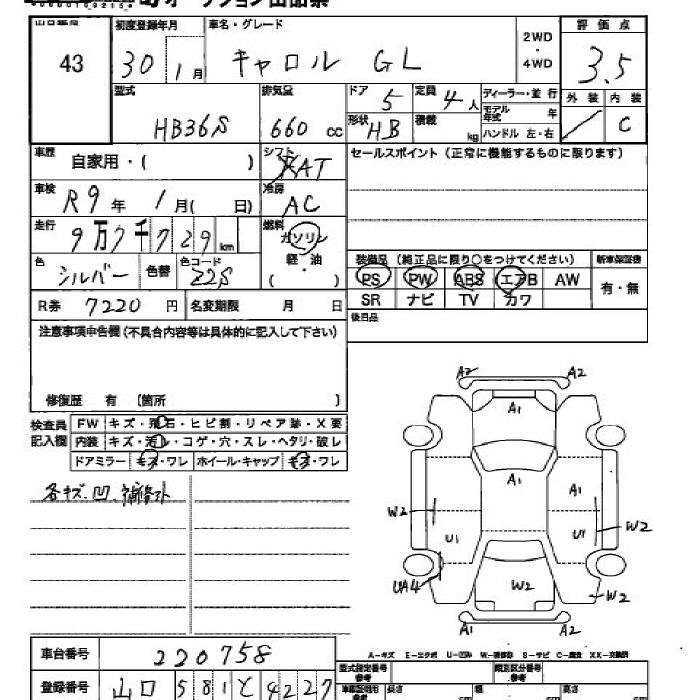 43
初度登録年月
30 1月
車名・グレード
キャロル GL
2WD
・
4WD
評価点
3.5
外装 内装
C
型式
HB36S
排気量
660 cc
ドア
5
定員
4人
ディーラー・並行
モデル年式 年
形状
HB
積載 kg
ハンドル 左・右
車歴
自家用・( )
シフト
AT
セールスポイント(正常に機能するものに限ります)
車検
R9年 1月( 日)
冷房
AC
走行
9万7千729km
燃料
ガソリン
軽・油
( )
色
シルバー
色替
色コード
Z2S
装備品(純正品に限り○をつけてください)
新車保証書
PS PW ABS エアB AW
有・無
SR ナビ TV カワ
R券 7220円
名変期限 月 日
後日品
注意事項申告欄(不具合内容等は具体的に記入して下さい)
修復歴 有 〔箇所 〕
検査員
記入欄
FW キズ・飛石・ヒビ割・リペア跡・X要
内装 キズ・汚レ・コゲ・穴・スレ・ヘタリ・破レ
ドアミラー キズ・ワレ ホイール・キャップ キズ・ワレ
各キズ、凹、補修跡
A2 A2
A1
A1
A1
W2
U1
U1
W2
UA4
W2
W2
A2 A2
A-キズ E-エクボ U-凹み W-補修跡 S-サビ C-腐食 XX-交換済
車台番号 220758
型式指定番号
参考
類別区分番号
参考
登録番号 山口 581 と 4227
車庫証明用
参考
長さ cm
幅 cm
高さ cm